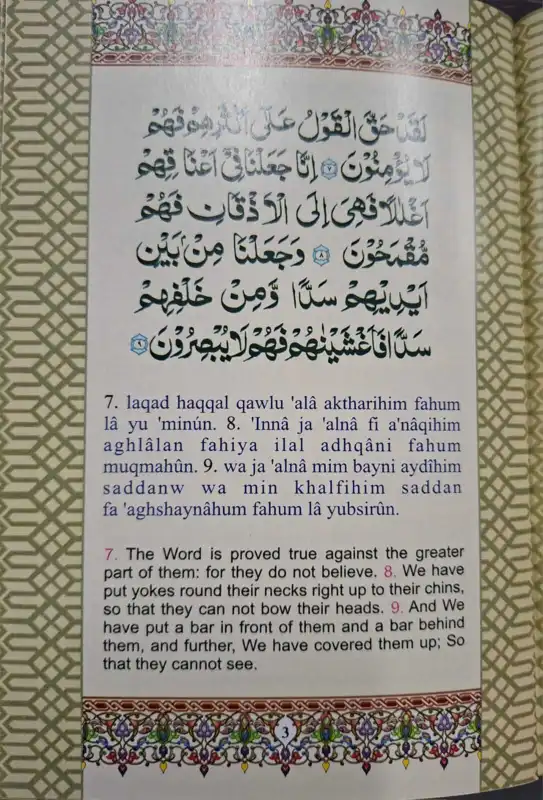 لَقَدْ حَقَّ الْقَوْلُ عَلٰٓى اَكْثَرِهِمْ فَهُمْ
لَا يُؤْمِنُوْنَ ۷ اِنَّا جَعَلْنَا فِىْٓ اَعْنَا قِهِمْ
اَغْلٰلًا فَهِىَ اِلَى الْاَذْقَانِ فَهُمْ
مُّقْمَحُوْنَ ۸ وَجَعَلْنَا مِنْۢ بَيْنِ
اَيْدِيْهِمْ سَدًّا وَّمِنْ خَلْفِهِمْ
سَدًّا فَاَغْشَيْنٰهُمْ فَهُمْ لَا يُبْصِرُوْنَ ۹
7. laqad haqqal qawlu 'alâ aktharihim fahum
lâ yu 'minún. 8. 'Innâ ja 'alnâ fi a'nâqihim
aghlâlan fahiya ilal adhqâni fahum
muqmahûn. 9. wa ja 'alnâ mim bayni aydîhim
saddanw wa min khalfihim saddan
fa 'aghshaynâhum fahum lâ yubsirûn.
7. The Word is proved true against the greater
part of them: for they do not believe. 8. We have
put yokes round their necks right up to their chins,
so that they can not bow their heads. 9. And We
have put a bar in front of them and a bar behind
them, and further, We have covered them up; So
that they cannot see.
3